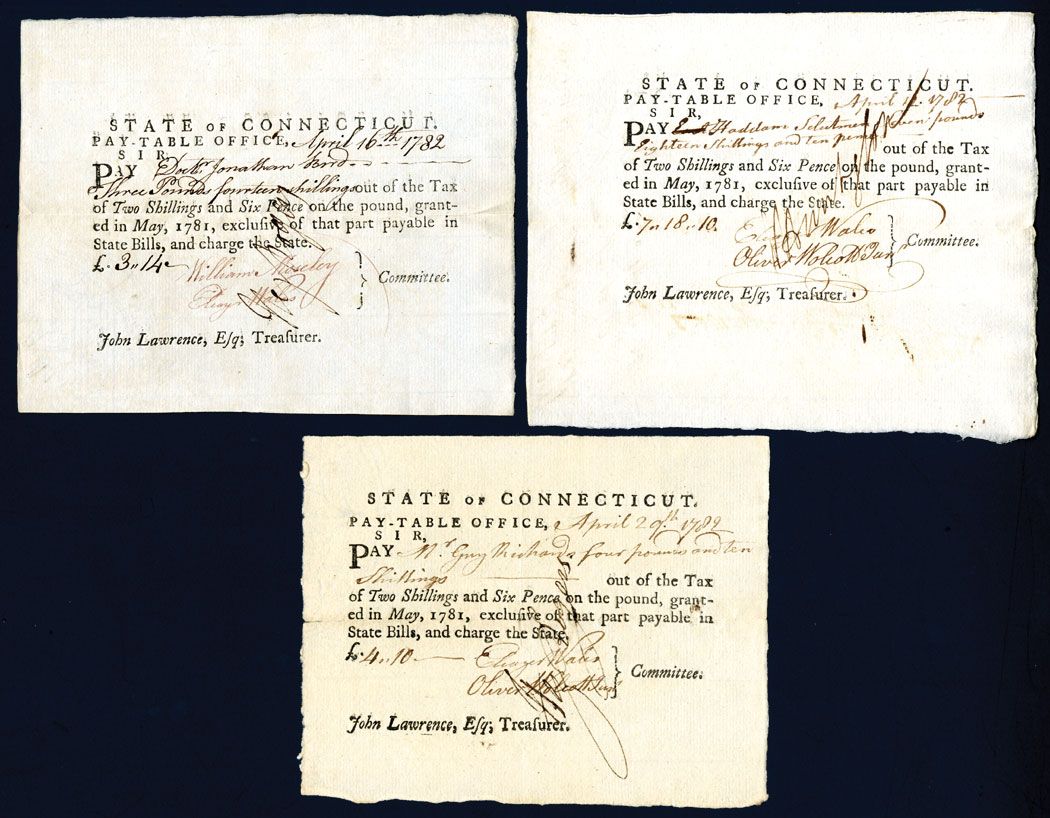 STATE OF CONNECTICUT.
PAY-TABLE OFFICE, April 16th 1782
SIR,
PAY Doctr. Jonathan Bord
Three Pounds fourteen shillings out of the Tax
of Two Shillings and Six Pence on the pound, grant-
ed in May, 1781, exclusive of that part payable in
State Bills, and charge the State.
£. 3,, 14
William Moseley
Eleazr Wales
Committee.
John Lawrence, Eſq; Treaſurer.
STATE OF CONNECTICUT.
PAY-TABLE OFFICE, April 1782
SIR,
PAY Haddam Selectmen Seven pounds
Eighteen Shillings and ten pence out of the Tax
of Two Shillings and Six Pence on the pound, grant-
ed in May, 1781, excluſive of that part payable in
State Bills, and charge the State.
£. 7,, 18,, 10.
Wales
Oliver Wolcott Junr
Committee.
John Lawrence, Eſq; Treaſurer.
STATE OF CONNECTICUT.
PAY-TABLE OFFICE, April 29th 1782
SIR,
PAY Mr. Guy Richards four pounds and ten
Shillings out of the Tax
of Two Shillings and Six Pence on the pound, grant-
ed in May, 1781, excluſive of that part payable in
State Bills, and charge the State.
£. 4,, 10
Eleazer Wales
Oliver Wolcott Junr
Committee.
John Lawrence, Eſq; Treaſurer.